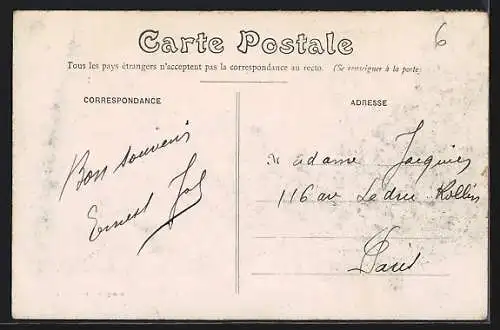 6
Carte Postale
Tous les pays étrangers n'acceptent pas la correspondance au recto. (Se renseigner à la poste)
CORRESPONDANCE
ADRESSE
Bon souvenir
Ernest
Madame Jacquier
116 av Ledru Rollin
Paris